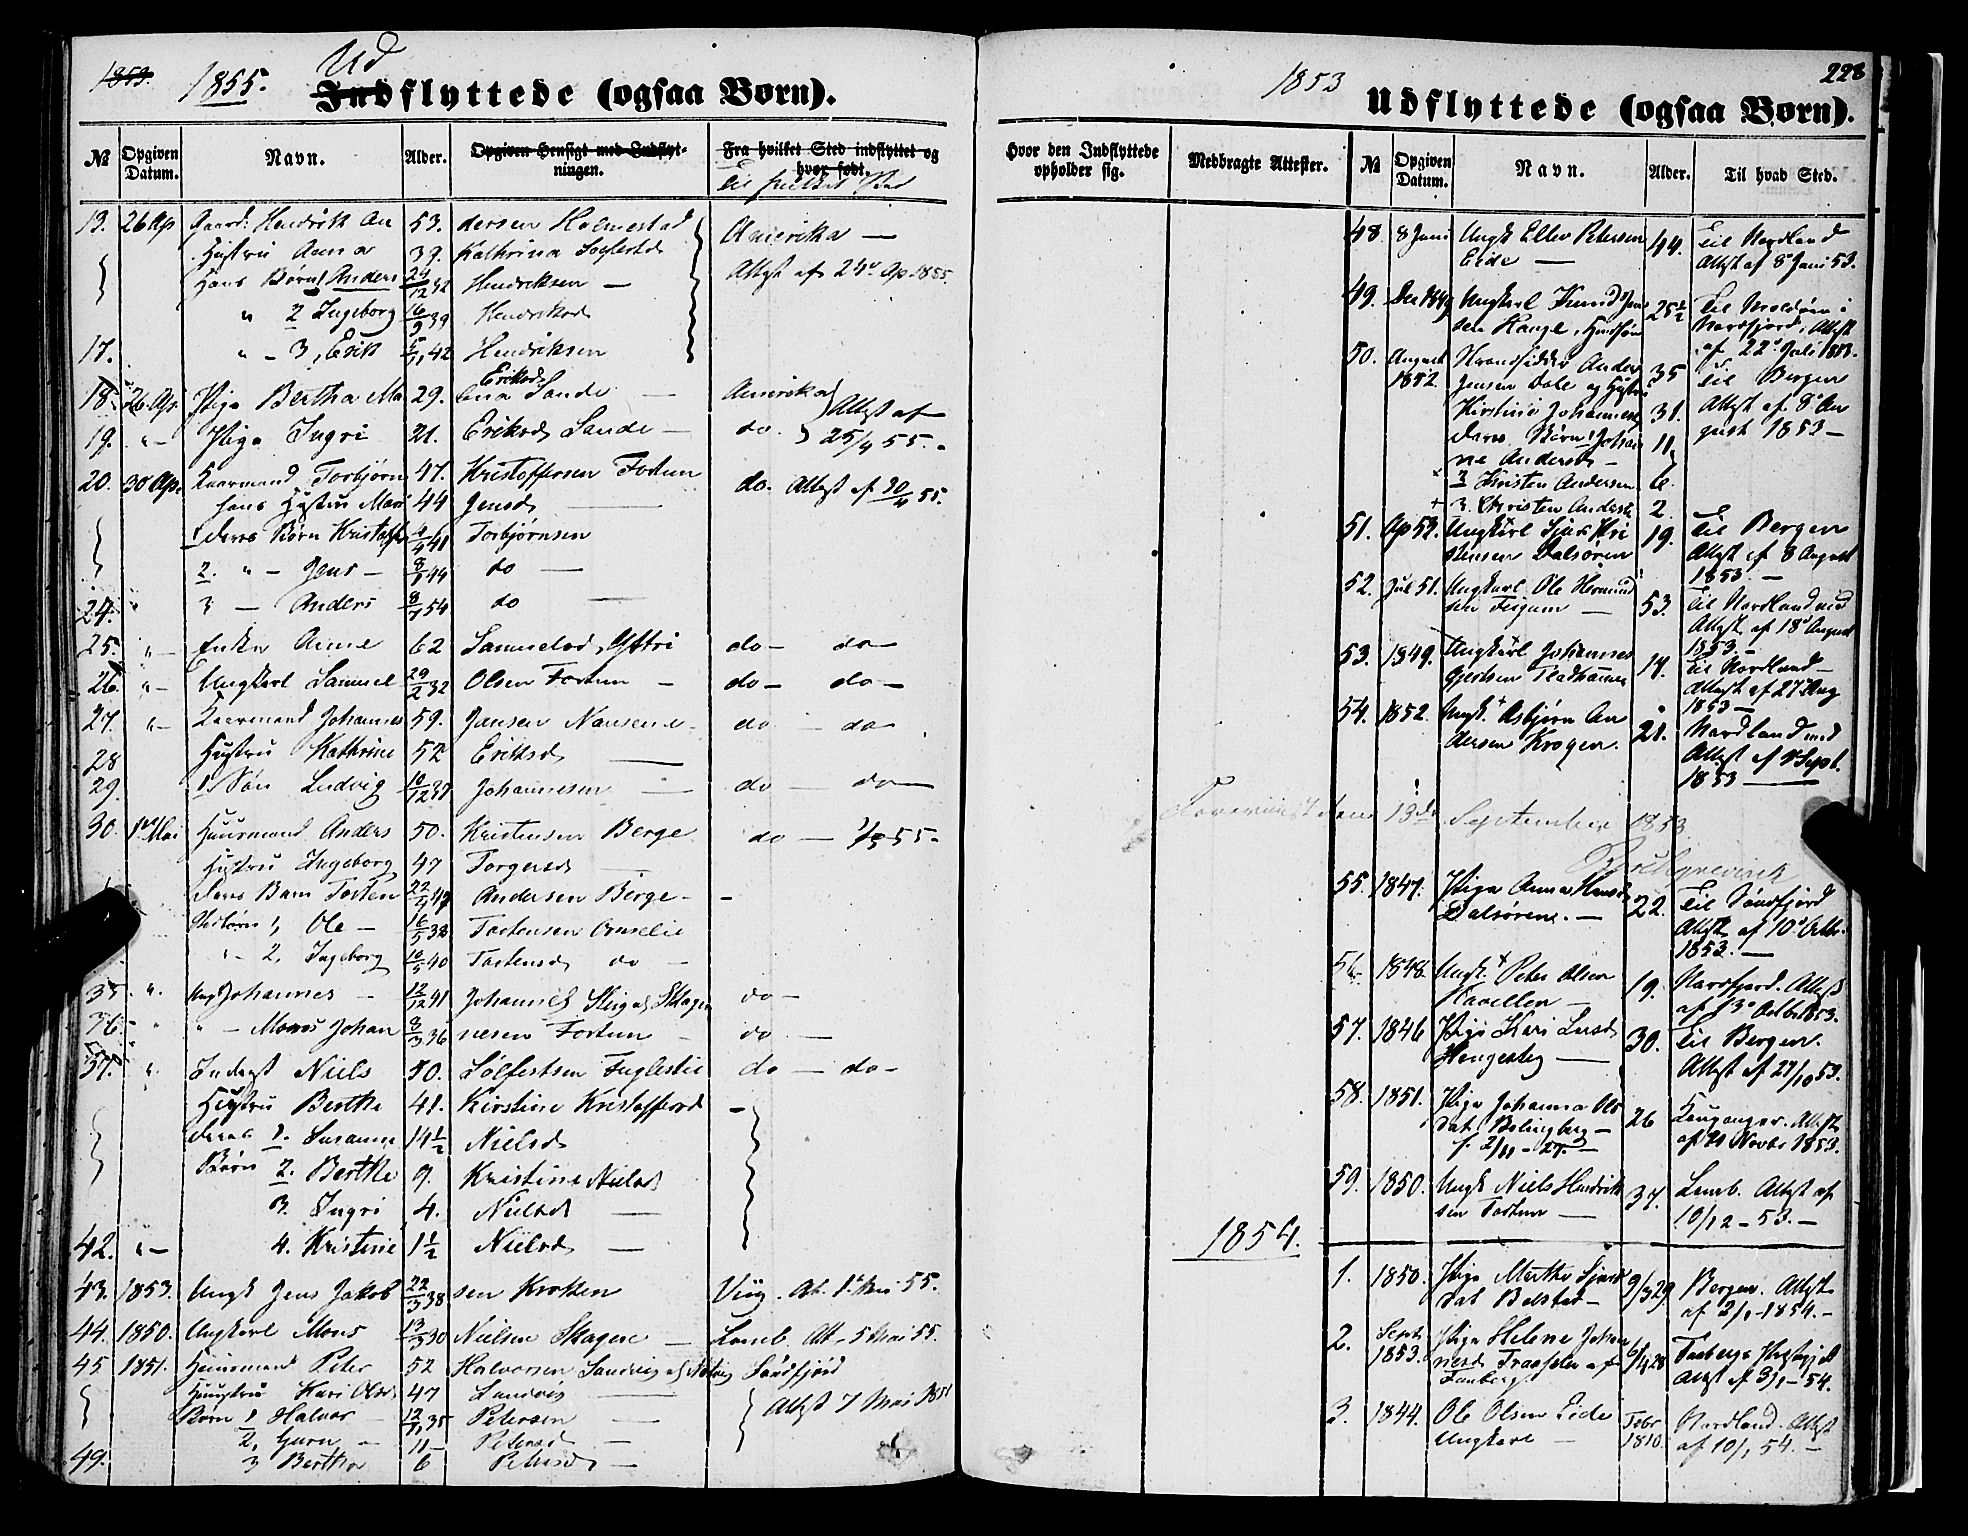 1853.
1855.
Ud
Indflyttede (ogsaa Børn).
№ Opgiven Datum. Navn. Alder. Opgiven Hensigt med Indflytningen. Fra hvilket Sted indflyttet og hvor født.
Til hvilket Sted
13. 26 Ap Gaard. Hendrik An 53. dersen Holmestad Amerika —
Hustru Anna 39. Kathrina Attest af 24de Ap. 1855.
Hans Børn 1 Anders 24/12 32 Hendriksen —
" 2 Ingeborg 16/9 39 Hendriksd
17. " - 3, Erik 42 Hendriksen
18. 26 Ap. Pige Bertha Ma 29. Eriksd Sande — Amerika Attest af
19. " - Pige Ingri 21. Eriksd Sande — do. 25/4 55.
20. 30 Ap. Kaarmand Torbjørn 47. Kristoffersen Fortun do. Attest af 30/4 55.
hans Hustru Mari 44 Jensd —
1 deres Børn Kristoffer 41 Torbjørnsen
2. " - Jens - 8/1 44 do —
24. " 3 — Anders 8/7 54 do —
25. " - Enke Anne 62 Samuelsd Yttri do - do -
26. " - Ungkarl Samuel 29/2 32 Olsen Fortun - do - do -
27. " - Kaarmand Johannes 59. Jansen do - do
28 Hustru Kathrine 52 Eriksd —
29. 1 Søn Ludvig 10/12 37 Johannesen — do - do —
30. 1ste Mai Huusmand Anders 50. Kristensen Berge do — 1/5 55 -
Hustru Ingeborg 47 Torgersd —
deres Barn Torsten 22/3 47 Andersen Berge - -
1, Ole - 16/5 38 Torstensen
" - 2, Ingeborg 10/5 40 Torstensd do -
35 " Johannes - 12/12 41 Johannes do -
36. " " - Johan 8/3 36 nesen Fortun - do —
37. " Inderst Niels 50. Sølfestsen Fuglestei do — do -
Hustru Berthe 41. Kirstine Kristoffersd -
deres 1. Susanne 14½ Nielsd
Børn 2. Berthe 9. Kristine Nielsd
3. Ingri 4. Nielsd —
42. " - 4. Kristine 1½ Nielsd —
43. 1853. Ungk Jens Jakob 22/3 38 sen Kroken Viig. At. 1ste Mai 55.
44. 1850. Ungkarl Mons 13/3 30 Nielsen Skagen — Lomb. Att. 5 Mai 55.
45. 1851. Huusmand Peter 52 Halvorsen Sandvig Søndfjord
Hustru Kari Olsd 47 Sandvig — Attest 7 Mai
Børn 1 Halvor 12/1 35 Petersen —
2, Guren - 11 - Petersd —
49. 3 Berthe 6 Petersd —
1853
228
Udflyttede (ogsaa Børn).
Hvor den Indflyttede opholder sig. Medbragte Attester. № Opgiven Datum. Navn. Alder. Til hvad Sted.
48. 8 Juni Ungk Ellev Petersen 44. Til Nordland
Eide — Attest af 8de Juni 53.
49. Dec 1849 Ungkarl Knud Jen 25½ Til Moldøen i
sen Hauge, Nordfjord, Attest
af 22de Juli 1853.
50. August Strandsidder Ander 35 Til Bergen
1852 Jensen Dale og Hustru
Kirstine Johannesd 31. Attest af 8de Au
deres Børn 1 Johan 11, gust 1853 —
ne Andersd —
2 Kristen Andersen 6.
3. Christen Andersen 2
51. Ap 52. Ungkarl Sjur Kri 19. Til Bergen
stensen Dalsøren Attest af 8 August
1853. —
52. Jul 51. Ungkarl Ole Hermund 53. Til Nordland med
sen Feigum — Attest af 18de August
1853. -
53. 1849. Ungkarl Johannes 17. Til Nordland —
Gjertsen Attest af 27de Aug
1853 —
54. 1852. Ungk. Asbjørn An 21. Nordland med
dersen Krogen. Attest af Sept.
1853 —
Foreviist den 13de September 1853.
55. 1847. Pige Anna Hans 22. Til Søndfjord
Dalsøren. — Attest af 10de Octbr.
1853. —
56. 1848. Ungk. Peter Olsen 19. Nordfjord. Attest
— af 13de Octbr 1853.
57. 1846 Pige Kari Larsd 30. Til Bergen.
— Attest af 27/10 53.
58. 1851. Pige Johanna Ols 26 Kaupanger. Attest
dat. Bolingberg — af Novbr 1853.
f. 2/11 - 27. —
59. 1850. Ungk Niels Hendrik 37. Lomb. Attest af
sen Fortun — 10/12 - 53. —
1854.
1. 1850. Pige Marthe Sjurs 9/3 29 Bergen. Attest
dat Bolstad — af 2/1 - 1854. —
2. Septr 1853. Pige Helene Johan 6/4 28 Faabergs Præstegjeld
nesd af Attest af 3/1 - 54.
Faaberg.
3. 1844. Ole Olsen Eide Febr 1810. Nordland. Attest
Ungkarl — af 10/1 54. —